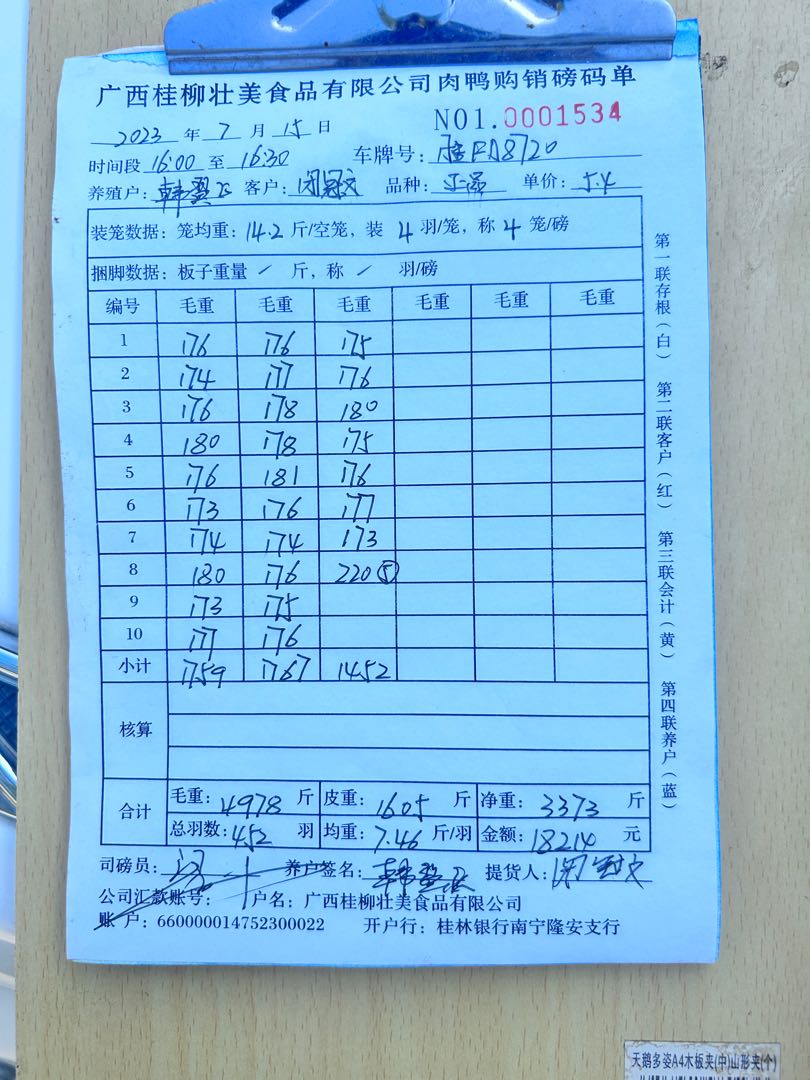 广西桂柳壮美食品有限公司肉鸭购销磅码单
NO1.0001534
2023 年 7 月 15 日
时间段 16:00 至 16:30 车牌号: 桂FA8720
养殖户: 韩盈 客户: 闭冠文 品种: 单价: 5.4
装笼数据: 笼均重: 14.2 斤/空笼, 装 4 羽/笼, 称 4 笼/磅
捆脚数据: 板子重量 / 斤, 称 / 羽/磅
编号 毛重 毛重 毛重 毛重 毛重 毛重
1 176 176 175
2 174 177 176
3 176 178 180
4 180 178 175
5 176 181 176
6 173 176 177
7 174 174 173
8 180 176 220⑤
9 173 175
10 177 176
小计 1759 1767 1452
核算
合计
毛重: 4978 斤 皮重: 1605 斤 净重: 3373 斤
总羽数: 452 羽 均重: 7.46 斤/羽 金额: 18214 元
司磅员: 养户签名: 韩盈 提货人: 闭冠文
公司汇款账号: 户名: 广西桂柳壮美食品有限公司
账户: 660000014752300022 开户行: 桂林银行南宁隆安支行
第一联存根(白) 第二联客户(红) 第三联会计(黄) 第四联养户(蓝)
天鹅多姿A4木板夹(中)山形夹(个)